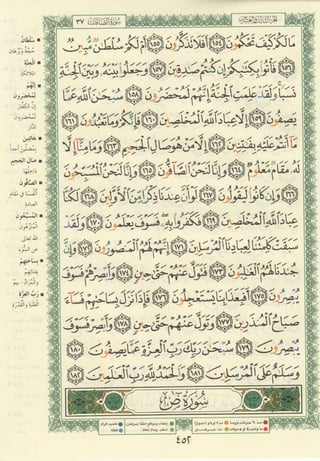 سورة الصافات ٣٧ الجزء الثالث والعشرون
مَا لَكُمْ كَيْفَ تَحْكُمُونَ ١٥٤ أَفَلَا تَذَكَّرُونَ ١٥٥ أَمْ لَكُمْ سُلْطَانٌ مُّبِينٌ ١٥٦
فَأْتُوا بِكِتَابِكُمْ إِن كُنتُمْ صَادِقِينَ ١٥٧ وَجَعَلُوا بَيْنَهُ وَبَيْنَ الْجِنَّةِ
نَسَبًا وَلَقَدْ عَلِمَتِ الْجِنَّةُ إِنَّهُمْ لَمُحْضَرُونَ ١٥٨ سُبْحَانَ اللَّهِ عَمَّا
يَصِفُونَ ١٥٩ إِلَّا عِبَادَ اللَّهِ الْمُخْلَصِينَ ١٦٠ فَإِنَّكُمْ وَمَا تَعْبُدُونَ ١٦١
مَا أَنتُمْ عَلَيْهِ بِفَاتِنِينَ ١٦٢ إِلَّا مَنْ هُوَ صَالِ الْجَحِيمِ ١٦٣ وَمَا مِنَّا إِلَّا
لَهُ مَقَامٌ مَّعْلُومٌ ١٦٤ وَإِنَّا لَنَحْنُ الصَّافُّونَ ١٦٥ وَإِنَّا لَنَحْنُ الْمُسَبِّحُونَ
١٦٦ وَإِن كَانُوا لَيَقُولُونَ ١٦٧ لَوْ أَنَّ عِندَنَا ذِكْرًا مِّنَ الْأَوَّلِينَ ١٦٨ لَكُنَّا
عِبَادَ اللَّهِ الْمُخْلَصِينَ ١٦٩ فَكَفَرُوا بِهِ فَسَوْفَ يَعْلَمُونَ ١٧٠ وَلَقَدْ
سَبَقَتْ كَلِمَتُنَا لِعِبَادِنَا الْمُرْسَلِينَ ١٧١ إِنَّهُمْ لَهُمُ الْمَنصُورُونَ ١٧٢ وَإِنَّ
جُندَنَا لَهُمُ الْغَالِبُونَ ١٧٣ فَتَوَلَّ عَنْهُمْ حَتَّى حِينٍ ١٧٤ وَأَبْصِرْهُمْ فَسَوْفَ
يُبْصِرُونَ ١٧٥ أَفَبِعَذَابِنَا يَسْتَعْجِلُونَ ١٧٦ فَإِذَا نَزَلَ بِسَاحَتِهِمْ فَسَاءَ
صَبَاحُ الْمُنذَرِينَ ١٧٧ وَتَوَلَّ عَنْهُمْ حَتَّى حِينٍ ١٧٨ وَأَبْصِرْ فَسَوْفَ
يُبْصِرُونَ ١٧٩ سُبْحَانَ رَبِّكَ رَبِّ الْعِزَّةِ عَمَّا يَصِفُونَ ١٨٠
وَسَلَامٌ عَلَى الْمُرْسَلِينَ ١٨١ وَالْحَمْدُ لِلَّهِ رَبِّ الْعَالَمِينَ ١٨٢
سُورَةُ ص
٤٥٢